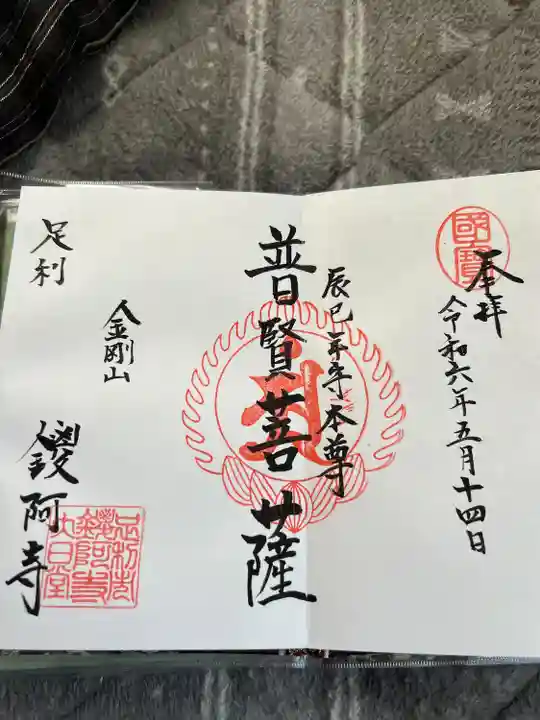 國寳
奉拝
令和六年五月十四日
辰巳年守本尊
普賢菩薩
足利
金剛山
鑁阿寺
足利市
鑁阿寺
大日堂